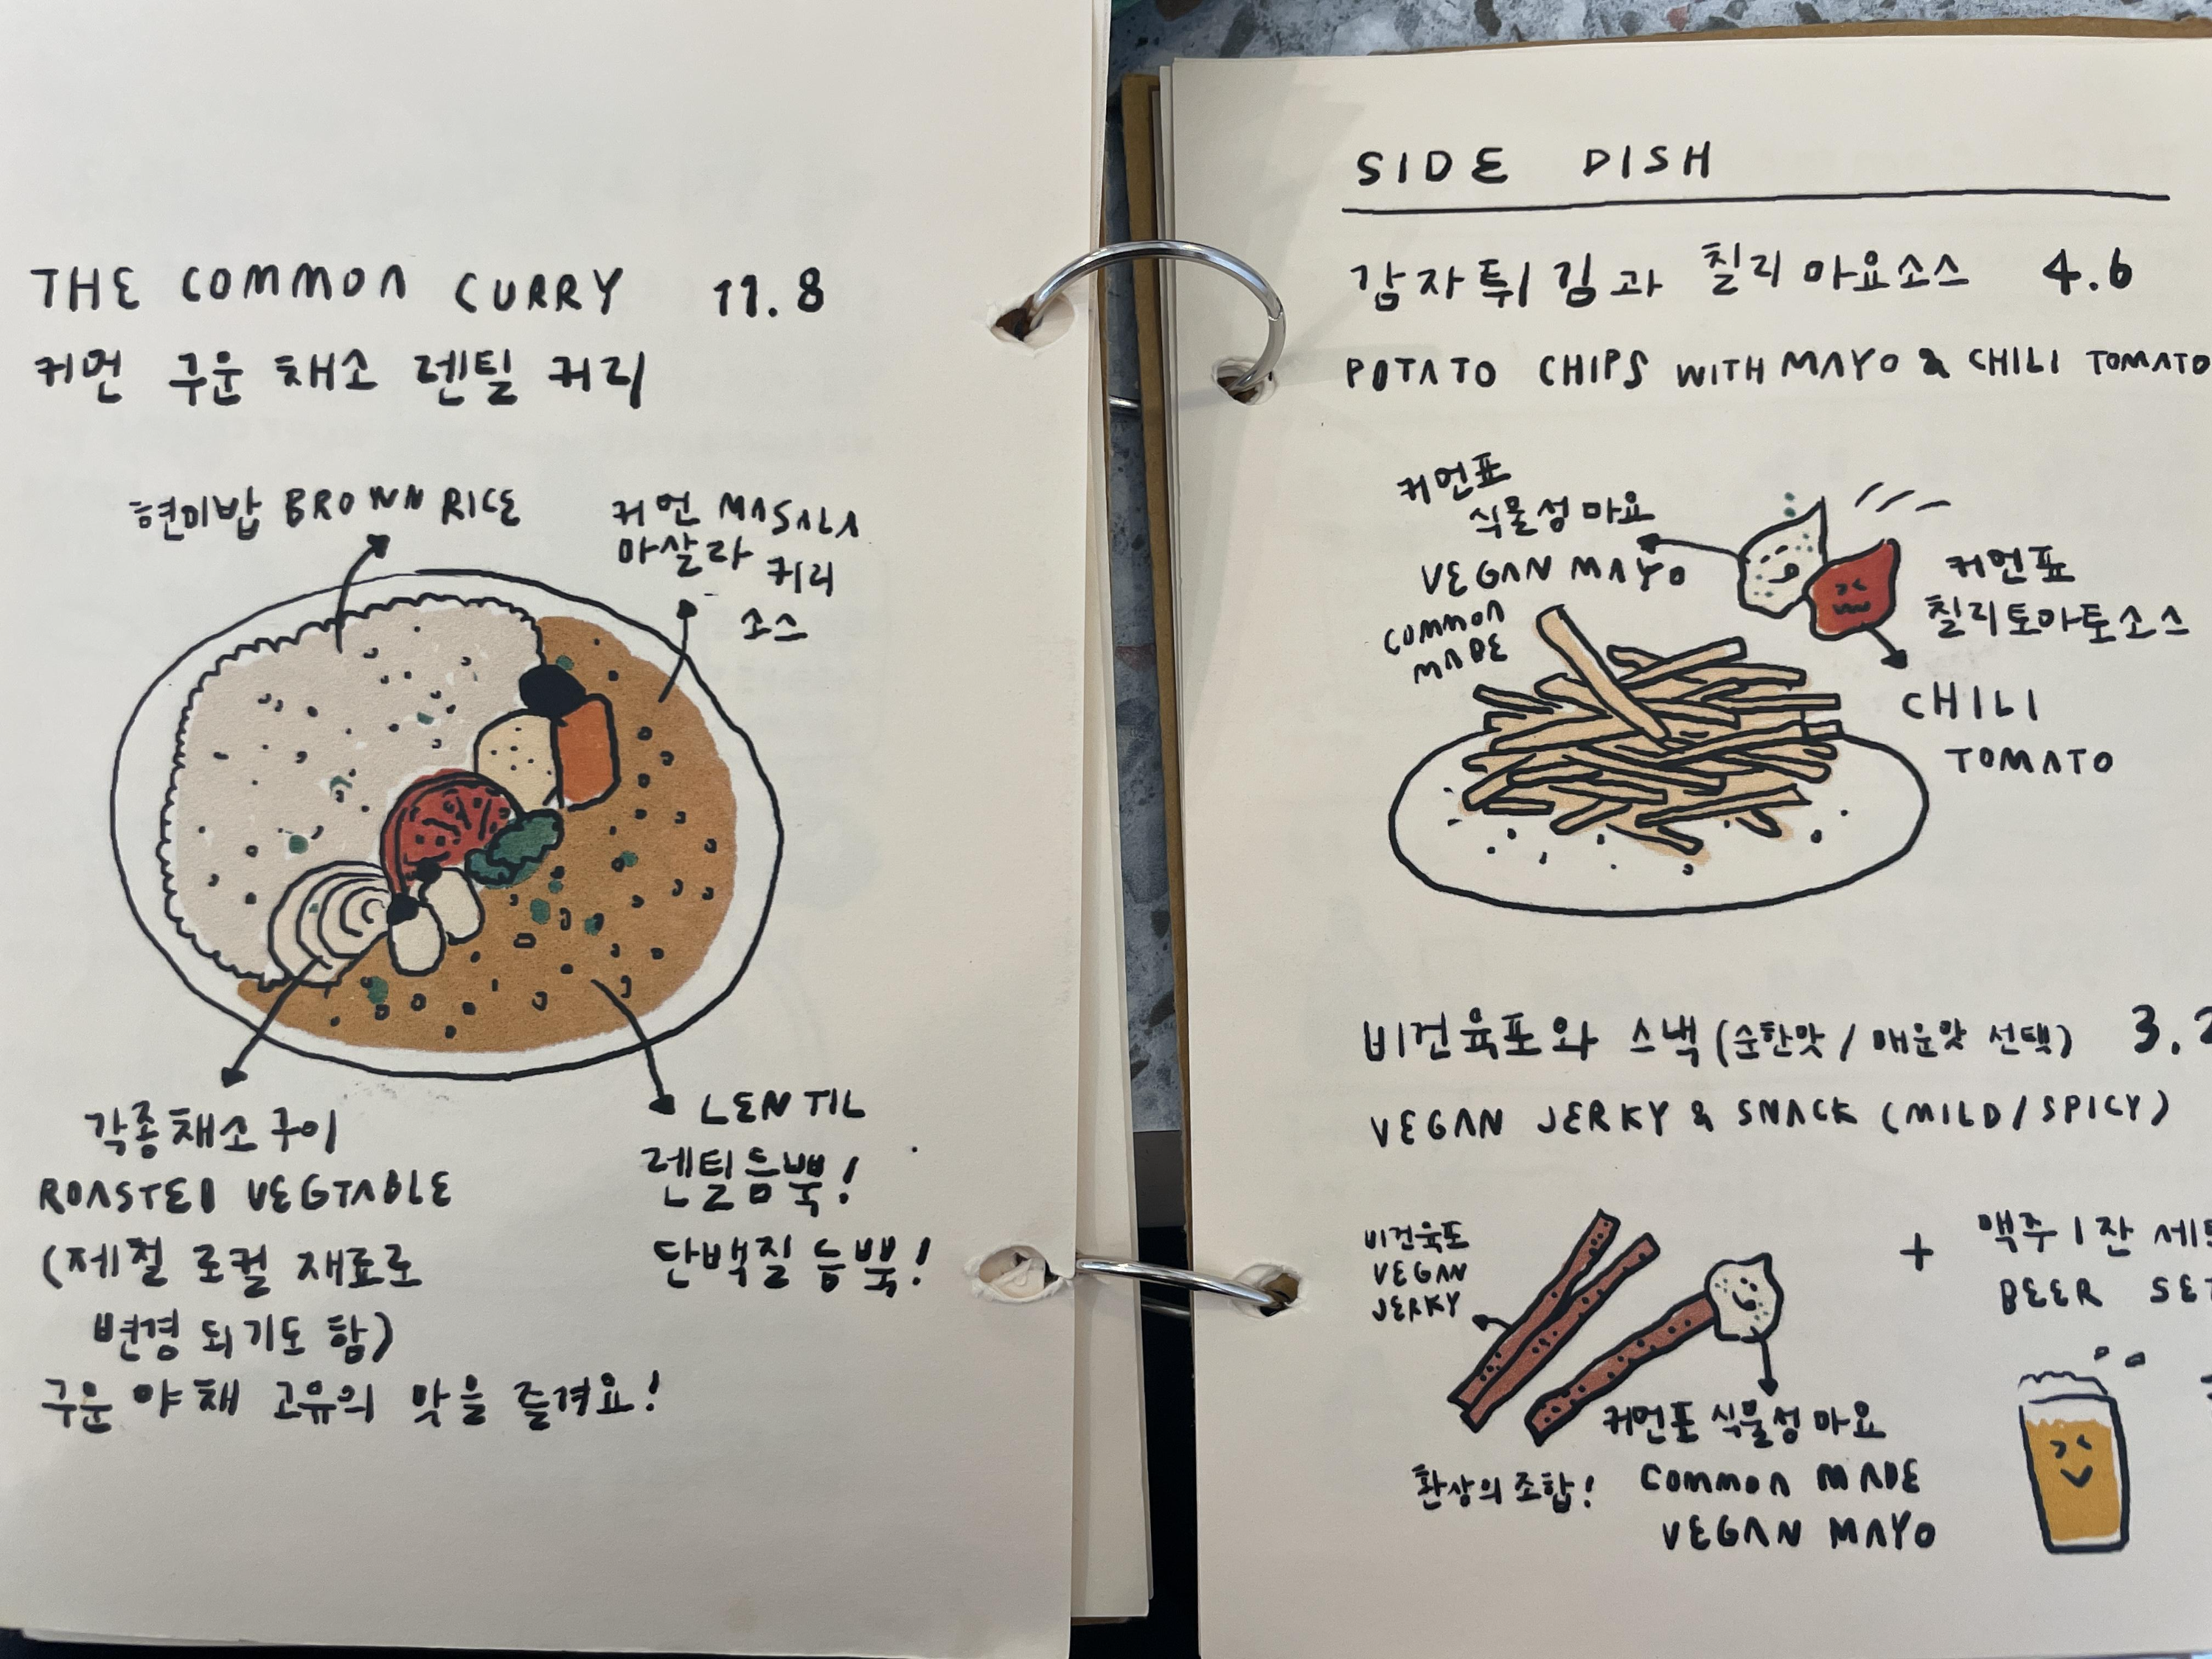 THE COMMON CURRY 11.8
커먼 구운 채소 렌틸 커리
현미밥 BROWN RICE
커먼 MASALA
마살라 커리
소스
각종채소구이
ROASTED VEGTABLE
(제철 로컬 재료로
변경 되기도 함)
구운 야채 고유의 맛을 즐겨요!
LENTIL
렌틸듬뿍!
단백질 듬뿍!
SIDE DISH
감자튀김과 칠리마요소스 4.6
POTATO CHIPS WITH MAYO & CHILI TOMATO
커먼표
식물성마요
VEGAN MAYO
COMMON
MADE
커먼표
칠리토마토소스
CHILI
TOMATO
비건육포와 스낵 (순한맛/매운맛 선택) 3.
VEGAN JERKY & SNACK (MILD/SPICY)
비건육포
VEGAN
JERKY
+ 맥주 1잔
BEER SET
커먼표 식물성 마요
환상의 조합! COMMON MADE
VEGAN MAYO